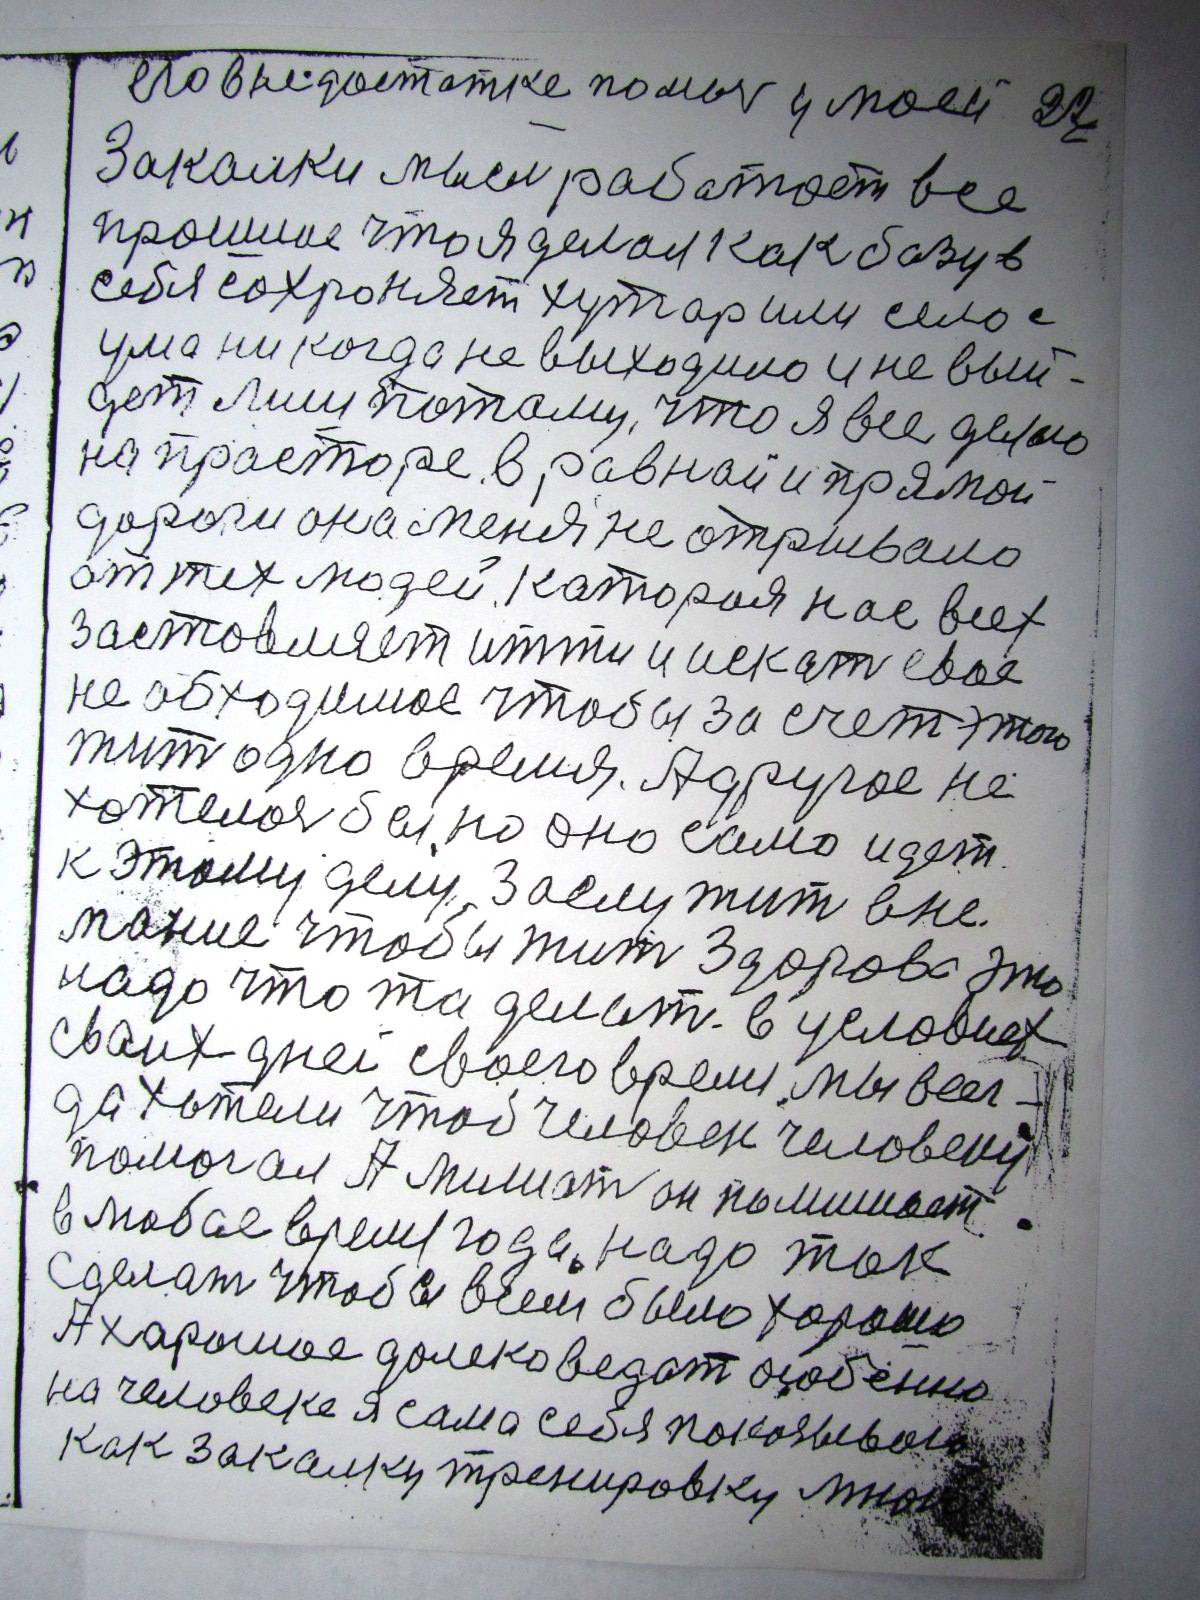 его в недостатке помоч у моей 22
Закалки мысл работает все
прошлое что я делал как базу в
себя сохроняет хутар или село с
ума ни когда не выходило и не вый-
дет лиш потому, что я все делаю
на прасторе в равнай и прямой
дороги она меня не отрывало
от тех людей. Катарая нас всех
застовляет итти и искат свое
не обходимое чтобы за счет этого
жит одно время. А другое не
хотелоя бы, но оно само идет
к этому делу. Заслужит вне.
мание чтобы жит Здорова это
надо что та делат. в условиех
сваих дней своего время. мы всег-
да хотели чтоб человек человеку
помогал А милиат он
в любое время года. надо так
сделат чтобы всем было хорошо
А харошое долеко ведат особенно
на человеке я сама себя показываю
как закалку тренировку много